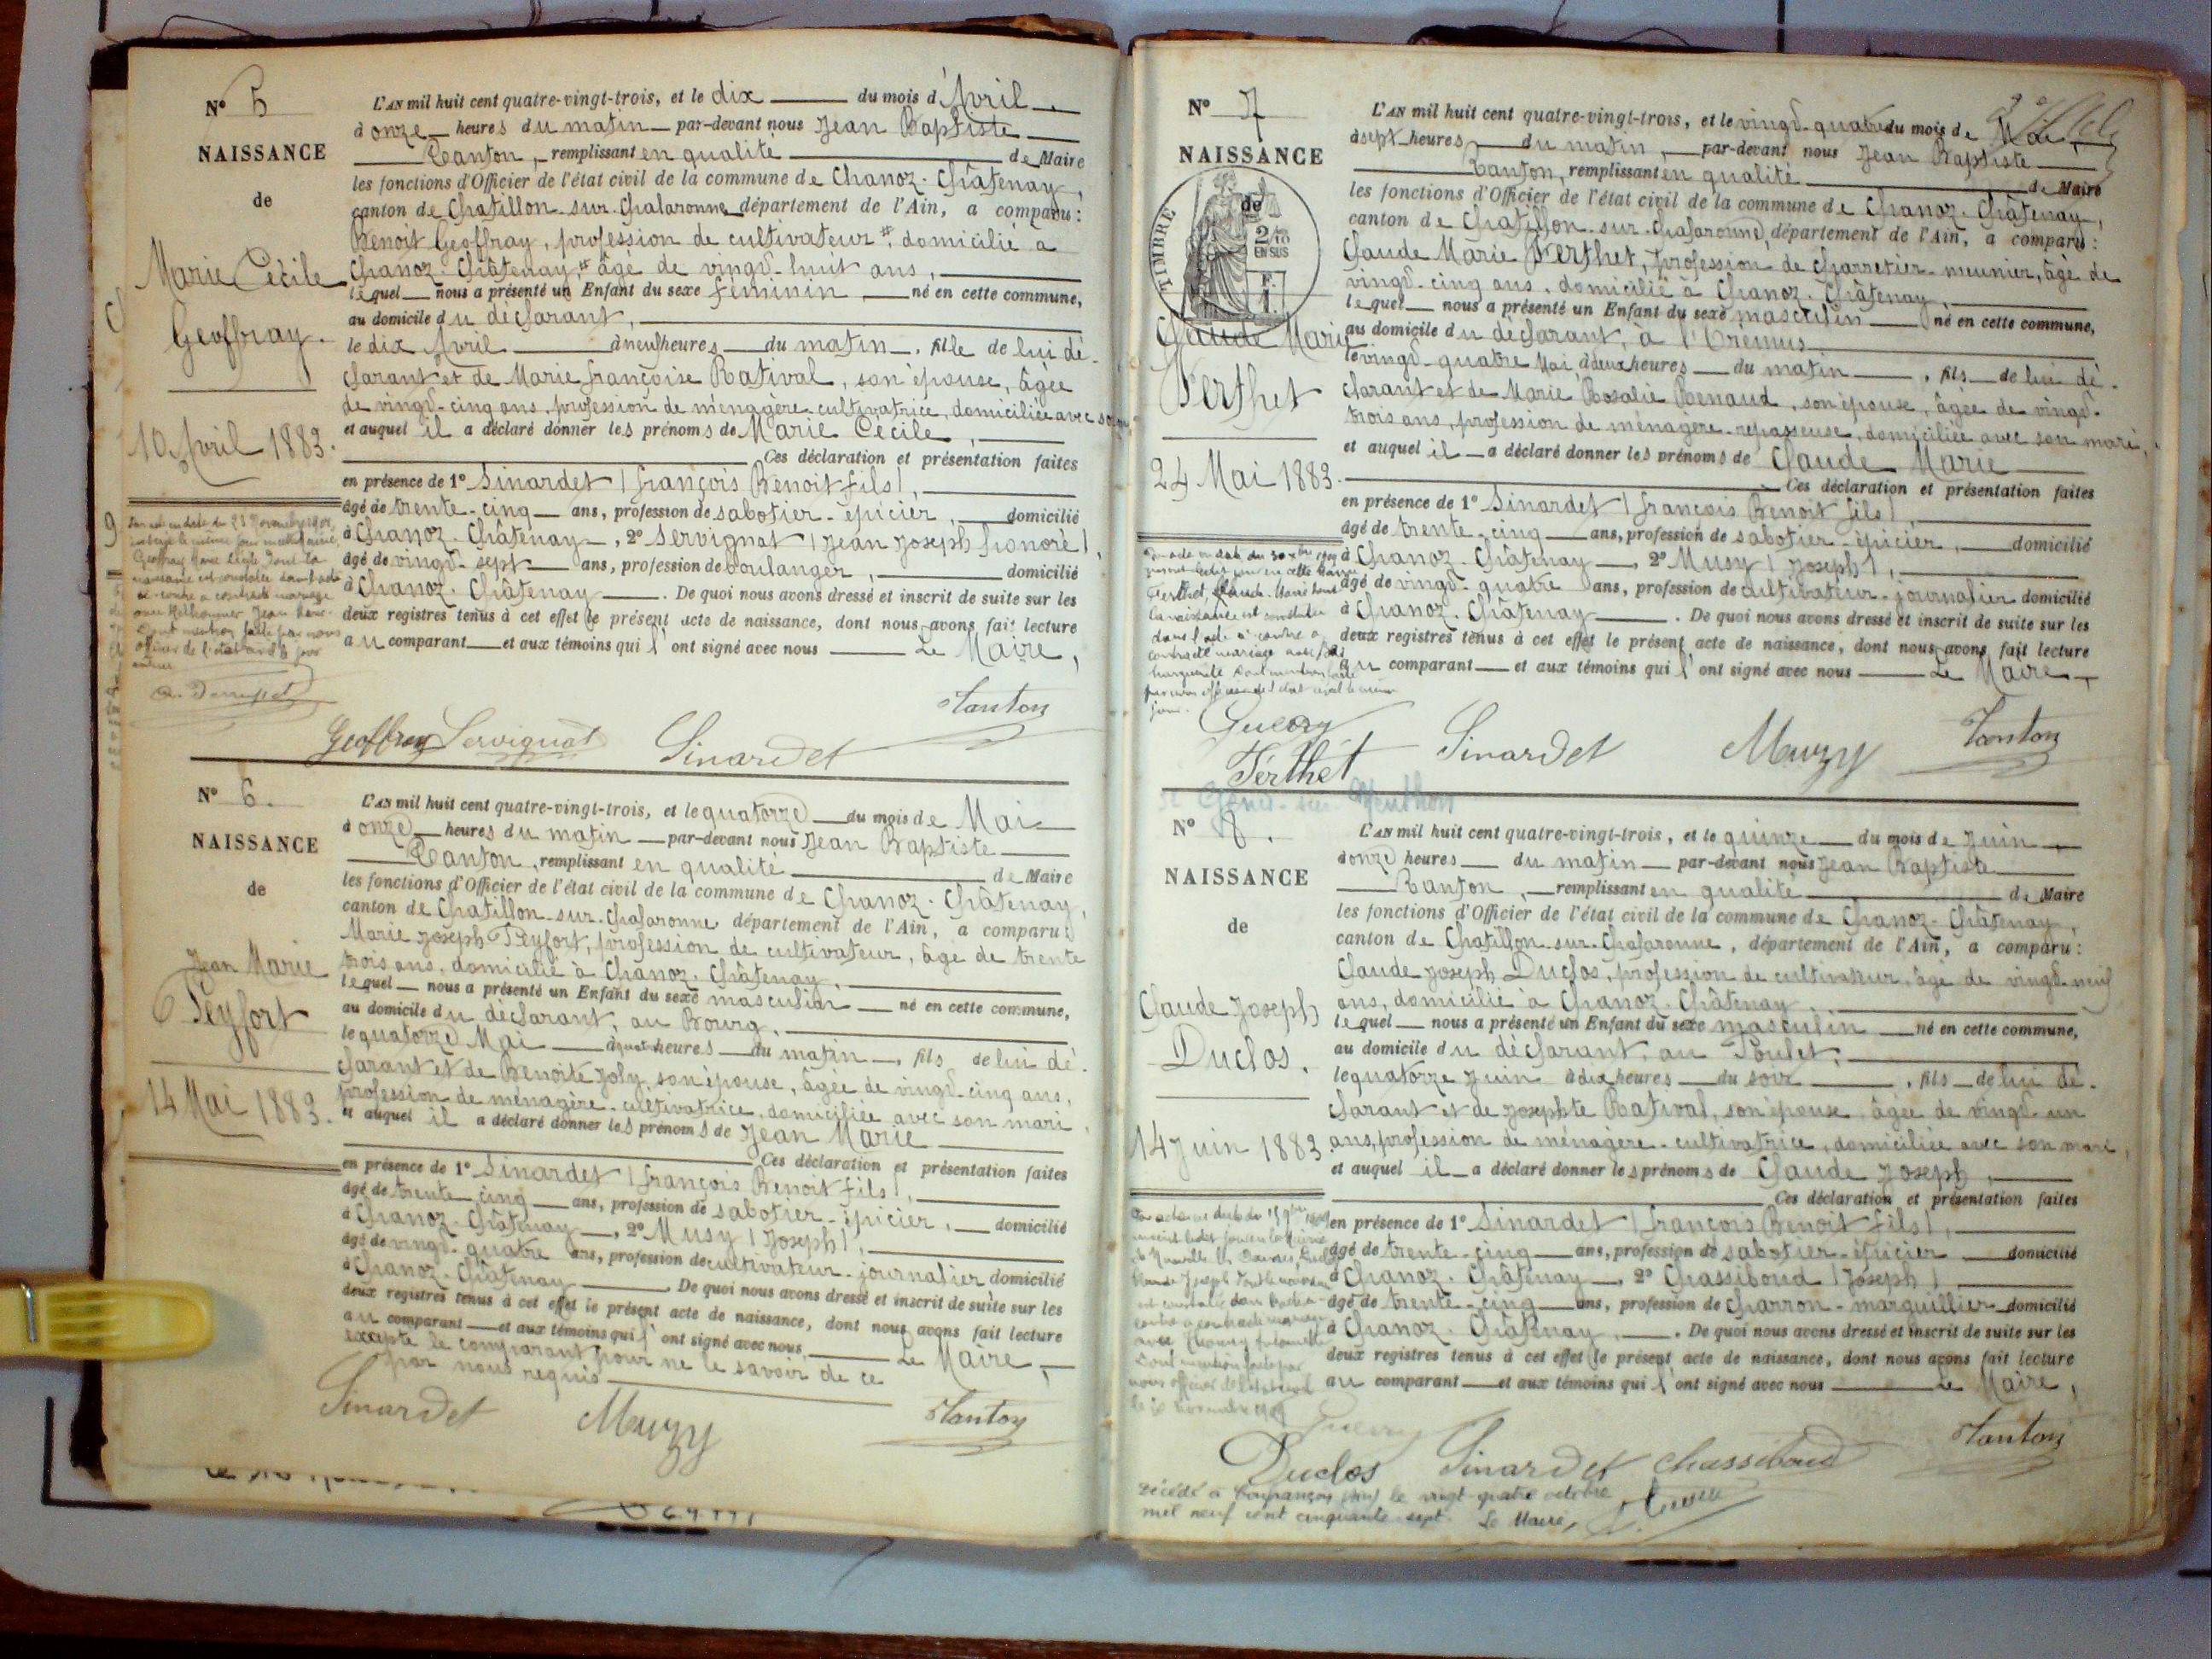 N° 5
NAISSANCE
de
Marie Cécile
Geoffray.
10 Avril 1883.
L'AN mil huit cent quatre-vingt-trois, et le dix du mois d'Avril
à onze heures du matin par-devant nous Jean Baptiste
Tanton, remplissant en qualité de Maire
les fonctions d'Officier de l'état civil de la commune de Chanoz-Châtenay,
canton de Chatillon-sur-Chalaronne département de l'Ain, a comparu :
Benoit Geoffray, profession de cultivateur #, domicilié à
Chanoz-Châtenay, # âgé de vingt-huit ans,
lequel nous a présenté un Enfant du sexe féminin né en cette commune,
au domicile du déclarant,
le dix Avril à neuf heures du matin, fille de lui dé-
clarant et de Marie françoise Rativat, son épouse, âgée
de vingt-cinq ans, profession de ménagère-cultivatrice, domiciliée avec
et auquel il a déclaré donner les prénoms de Marie Cécile,
Ces déclaration et présentation faites
en présence de 1° Sinardet (françois Benoit fils),
âgé de trente-cinq ans, profession de sabotier-épicier, domicilié
à Chanoz-Châtenay, 2° Servignat (Jean Joseph honoré),
âgé de vingt-sept ans, profession de boulanger, domicilié
à Chanoz-Châtenay. De quoi nous avons dressé et inscrit de suite sur les
deux registres tenus à cet effet le présent acte de naissance, dont nous avons fait lecture
au comparant et aux témoins qui l'ont signé avec nous Le Maire,
Geoffray Servignat Sinardet Tanton
N° 6.
NAISSANCE
de
Jean Marie
Peyfort
14 Mai 1883.
L'AN mil huit cent quatre-vingt-trois, et le quatorze du mois de Mai
à onze heures du matin par-devant nous Jean Baptiste
Tanton, remplissant en qualité de Maire
les fonctions d'Officier de l'état civil de la commune de Chanoz-Châtenay,
canton de Chatillon-sur-Chalaronne département de l'Ain, a comparu :
Marie Joseph Peyfort, profession de cultivateur, âgé de trente
trois ans, domicilié à Chanoz-Châtenay,
lequel nous a présenté un Enfant du sexe masculin né en cette commune,
au domicile du déclarant, au Bourg,
le quatorze Mai à heures du matin, fils de lui dé-
clarant et de Benoîte Joly, son épouse, âgée de vingt-cinq ans,
profession de ménagère-cultivatrice, domiciliée avec son mari,
et auquel il a déclaré donner les prénoms de Jean Marie
Ces déclaration et présentation faites
en présence de 1° Sinardet (françois Benoit fils),
âgé de trente-cinq ans, profession de sabotier-épicier, domicilié
à Chanoz-Châtenay, 2° Musy (Joseph),
âgé de vingt-quatre ans, profession de cultivateur-journalier domicilié
à Chanoz-Châtenay. De quoi nous avons dressé et inscrit de suite sur les
deux registres tenus à cet effet le présent acte de naissance, dont nous avons fait lecture
au comparant et aux témoins qui l'ont signé avec nous, Le Maire,
excepté le comparant pour ne le savoir de ce
par nous requis
Sinardet Muzy Tanton
N° 7
NAISSANCE
de
TIMBRE
2/10
EN SUS
Claude Marie
Ferthet
24 Mai 1883.
L'AN mil huit cent quatre-vingt-trois, et le vingt-quatre du mois de Mai,
à sept heures du matin, par-devant nous Jean Baptiste
Tanton, remplissant en qualité de Maire
les fonctions d'Officier de l'état civil de la commune de Chanoz-Châtenay,
canton de Chatillon-sur-Chalaronne, département de l'Ain, a comparu :
Claude Marie Ferthet, profession de charretier-meunier, âgé de
vingt-cinq ans, domicilié à Chanoz-Châtenay,
lequel nous a présenté un Enfant du sexe masculin né en cette commune,
au domicile du déclarant, à
le vingt-quatre Mai à deux heures du matin, fils de lui dé-
clarant et de Marie Rosalie Renaud, son épouse, âgée de vingt-
trois ans, profession de ménagère-repasseuse, domiciliée avec son mari,
et auquel il a déclaré donner les prénoms de Claude Marie
Ces déclaration et présentation faites
en présence de 1° Sinardet (françois Benoit fils),
âgé de trente-cinq ans, profession de sabotier-épicier, domicilié
à Chanoz-Châtenay, 2° Musy (Joseph),
âgé de vingt-quatre ans, profession de cultivateur-journalier domicilié
à Chanoz-Châtenay. De quoi nous avons dressé et inscrit de suite sur les
deux registres tenus à cet effet le présent acte de naissance, dont nous avons fait lecture
au comparant et aux témoins qui l'ont signé avec nous Le Maire,
Guerry
Ferthet Sinardet Muzy Tanton
N° 8.
NAISSANCE
de
Claude Joseph
Duclos.
14 Juin 1883.
L'AN mil huit cent quatre-vingt-trois, et le quinze du mois de Juin
à onze heures du matin par-devant nous Jean Baptiste
Tanton, remplissant en qualité de Maire
les fonctions d'Officier de l'état civil de la commune de Chanoz-Châtenay,
canton de Chatillon-sur-Chalaronne, département de l'Ain, a comparu :
Claude Joseph Duclos, profession de cultivateur, âgé de vingt-neuf
ans, domicilié à Chanoz-Châtenay,
lequel nous a présenté un Enfant du sexe masculin né en cette commune,
au domicile du déclarant, au Poulet,
le quatorze Juin à dix heures du soir, fils de lui dé-
clarant et de Josephte Rativat, son épouse, âgée de vingt-un
ans, profession de ménagère-cultivatrice, domiciliée avec son mari,
et auquel il a déclaré donner les prénoms de Claude Joseph,
Ces déclaration et présentation faites
en présence de 1° Sinardet (françois Benoit fils),
âgé de trente-cinq ans, profession de sabotier-épicier domicilié
à Chanoz-Châtenay, 2° Chassiboud (Joseph)
âgé de trente-cinq ans, profession de charron-marguillier domicilié
à Chanoz-Châtenay. De quoi nous avons dressé et inscrit de suite sur les
deux registres tenus à cet effet le présent acte de naissance, dont nous avons fait lecture
au comparant et aux témoins qui l'ont signé avec nous Le Maire,
Guerry
Duclos Sinardet Chassiboud Tanton
Décédé à le vingt-quatre octobre
mil neuf cent cinquante-sept. Le Maire,